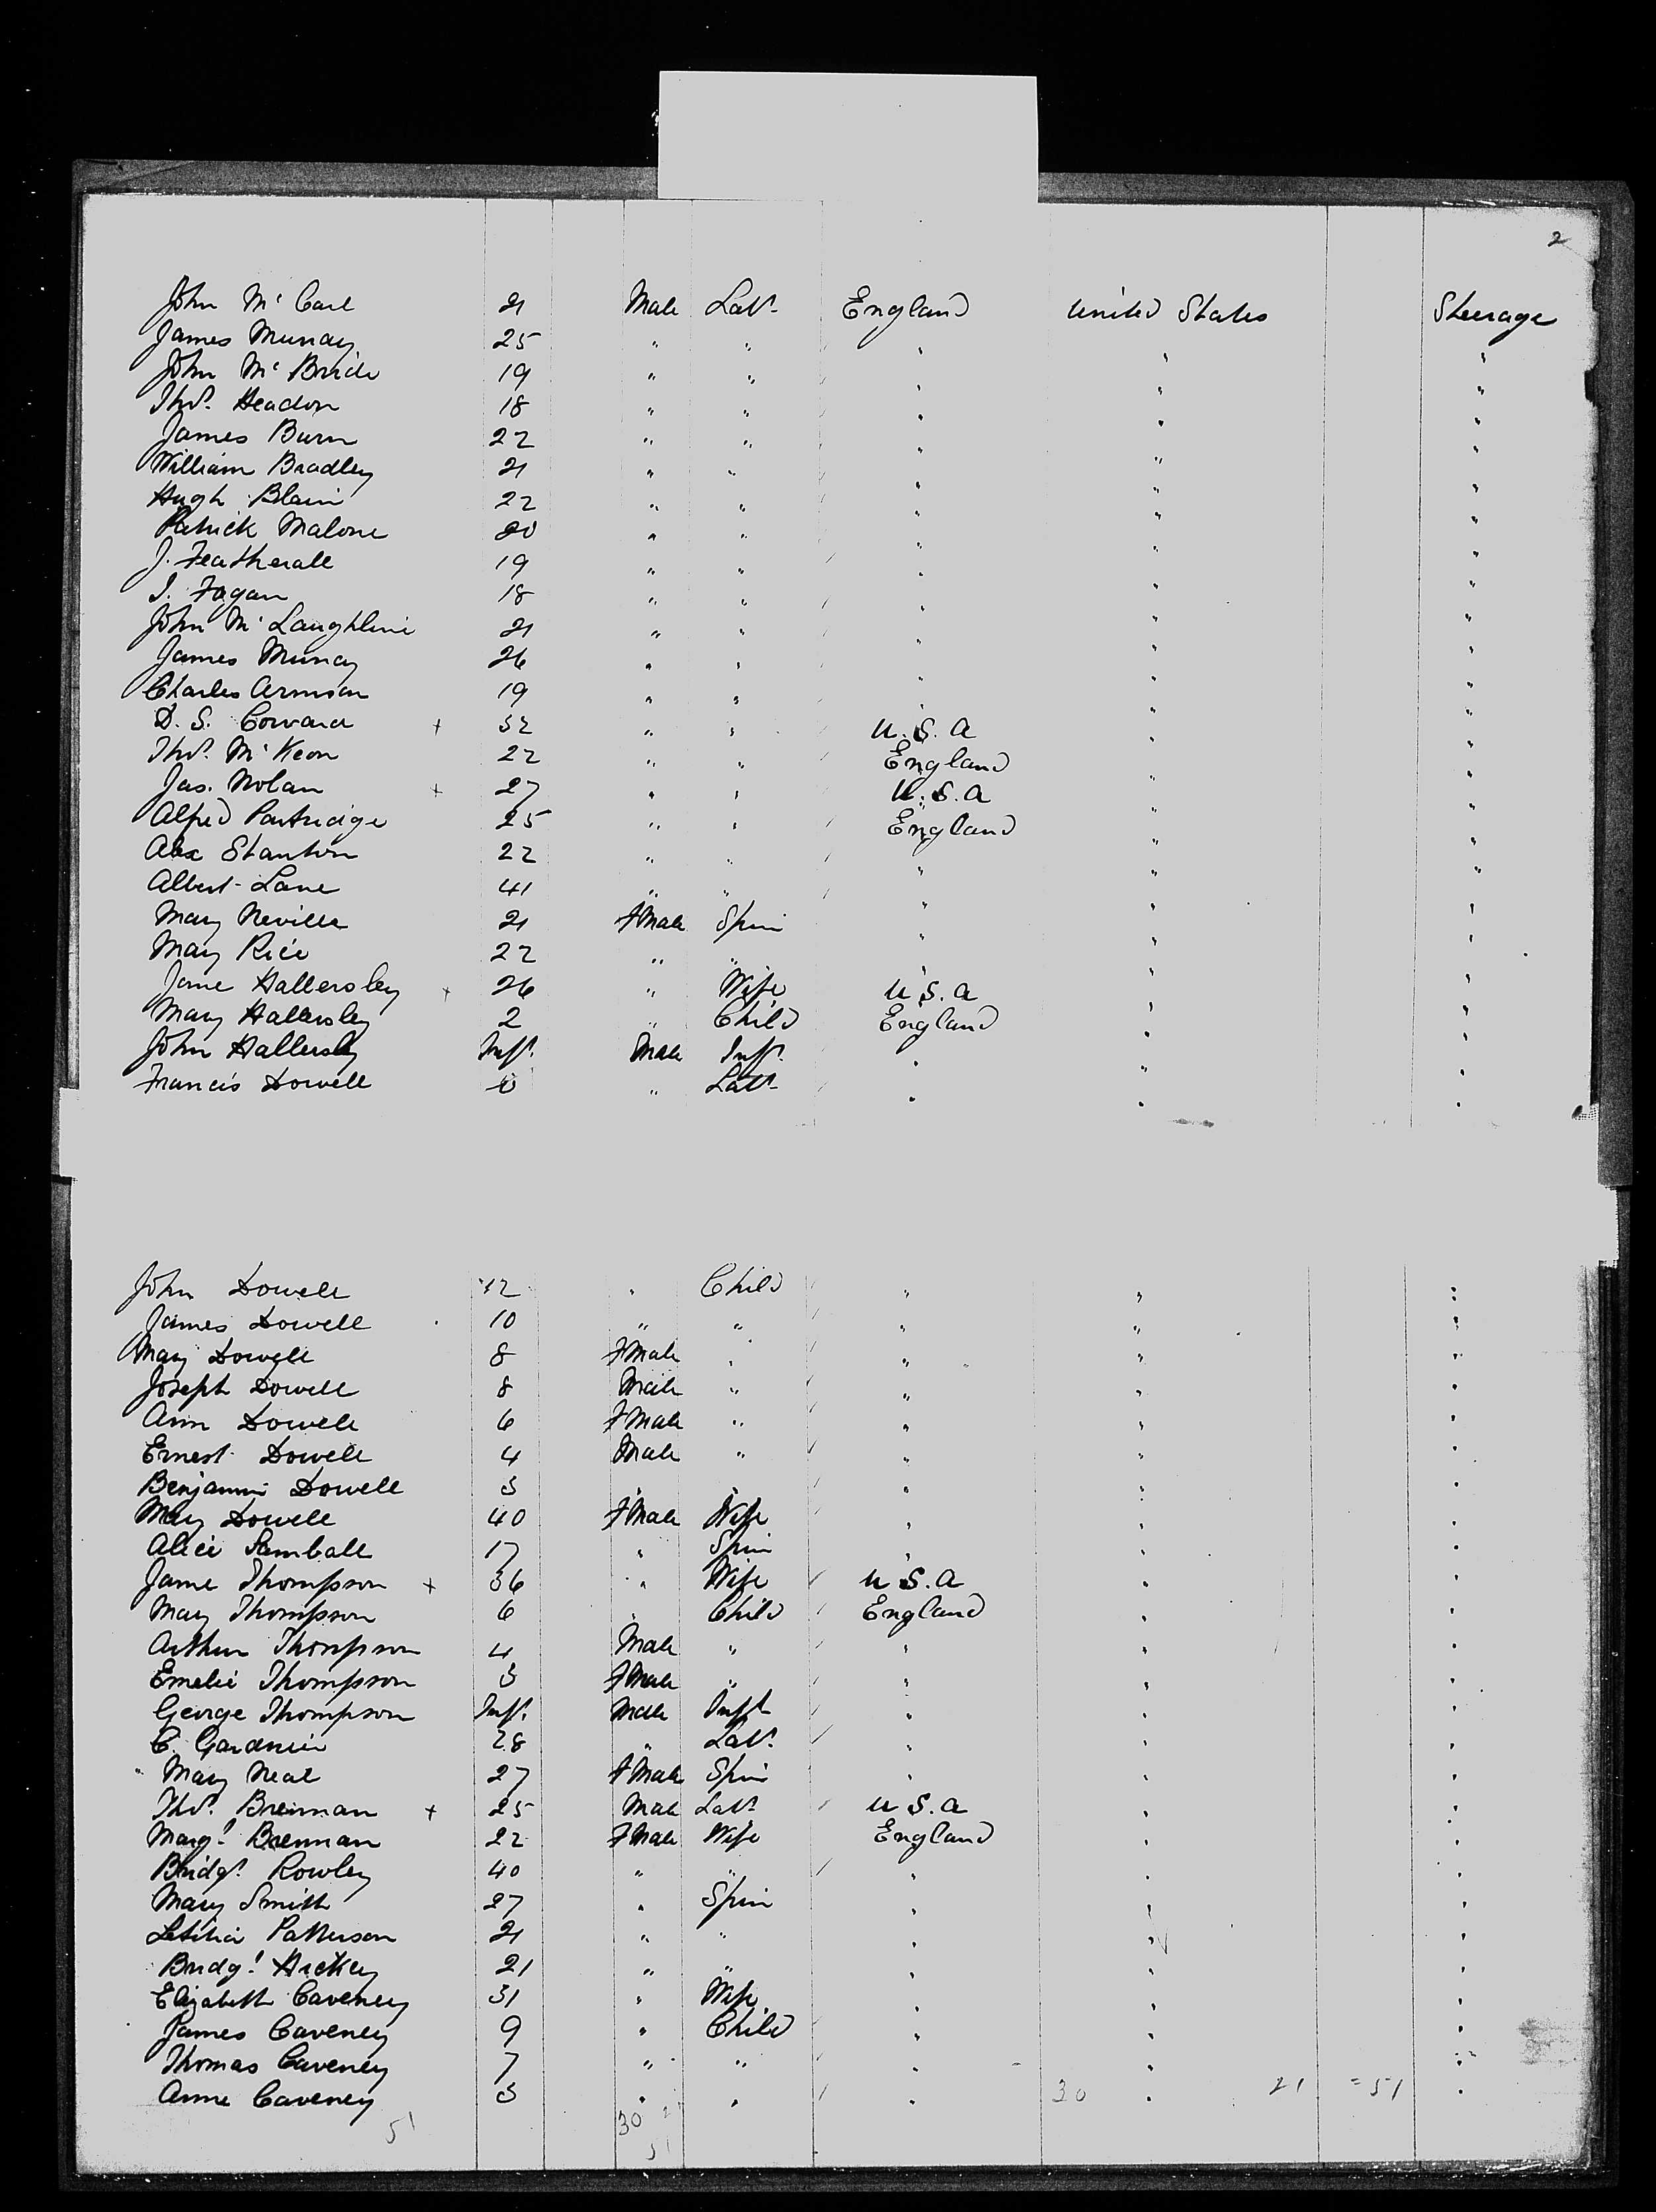 2
John McCarl 21 Male Labr England United States Steerage
James Murray 25 " " " " "
John McBride 19 " " " " "
Thos. Headon 18 " " " " "
James Burn 22 " " " " "
William Bradley 21 " " " " "
Hugh Blain 22 " " " " "
Patrick Malone 20 " " " " "
J. Featherall 19 " " " " "
J. Fagan 18 " " " " "
John McLaughlin 21 " " " " "
James Murray 26 " " " " "
Charles Armson 19 " " " " "
D. S. Coward + 32 " " U.S.A " "
Thos. McKeon 22 " " England " "
Jas. Nolan + 27 " " U.S.A " "
Alfred Partridge 25 " " England " "
Alex Stanton 22 " " " " "
Albert Lane 41 " " " " "
Mary Neville 21 FMale Spin " " "
Mary Rice 22 " " " " "
Jane Hallersley + 26 " Wife U.S.A " "
Mary Hallersley 2 " Child England " "
John Hallersley Inft. Male Inft. " " "
Francis Dowell " Labr " " "
John Dowell 12 " Child " " "
James Dowell 10 " " " " "
Mary Dowell 8 FMale " " " "
Joseph Dowell 8 Male " " " "
Ann Dowell 6 FMale " " " "
Ernest Dowell 4 Male " " " "
Benjamin Dowell 3 " " " " "
Mary Dowell 40 FMale Wife " " "
Alice Samball 17 " Spin " " "
Jane Thompson + 36 " Wife U.S.A " "
Mary Thompson 6 " Child England " "
Arthur Thompson 4 Male " " " "
Emelie Thompson 3 FMale " " " "
George Thompson Inft. Male Inft " " "
C. Gardner 28 " Labr. " " "
Mary Neal 27 FMale Spin " " "
Thos. Brennan + 25 Male Labr U.S.A " "
Margt. Brennan 22 FMale Wife England " "
Bridgt. Rowley 40 " " " " "
Mary Smith 27 " Spin " " "
Letitia Patterson 21 " " " " "
Bridgt. Hickey 21 " " " " "
Elizabeth Caveney 31 " Wife " " "
James Caveney 9 " Child " " "
Thomas Caveney 7 " " " " "
Anne Caveney 3 " " " 30 " 21 = 51 "
51 30 21
51